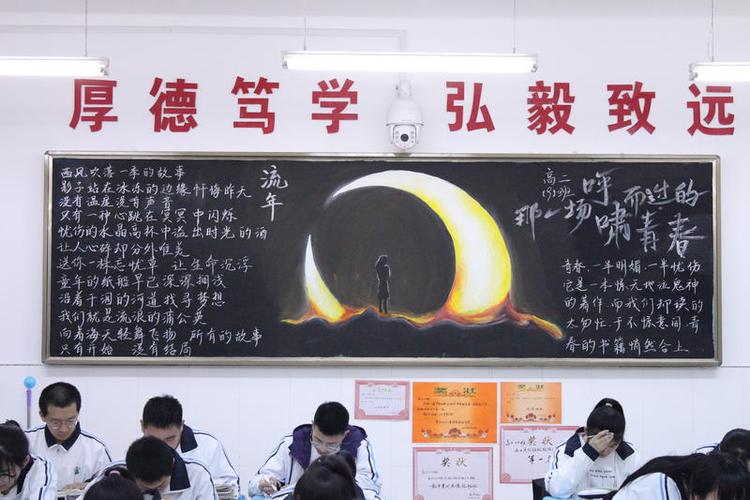 厚德笃学 弘毅致远
流年
西风吹落一季的故事
影子站在冰冻的边缘 忏悔昨天
没有温度没有声音
只有一种心跳在冥冥中闪烁
忧伤的水晶高杯中溢出时光的酒
让人心碎却分外唯美
送你一株忘忧草 让生命沉浮
童年的纸船早已深深搁浅
沿着干涸的河道找寻梦想
我们就是流浪的蒲公英
向着海天轻舞飞扬 所有的故事
只有开始 没有结局
高二
191班
那一场呼啸而过的青春
青春，一半明媚，一半忧伤
它是一本惊天地泣鬼神
的著作，而我们却读的
太匆忙，于不惊意间，青
春的书籍悄然合上
奖状
奖状
奖状